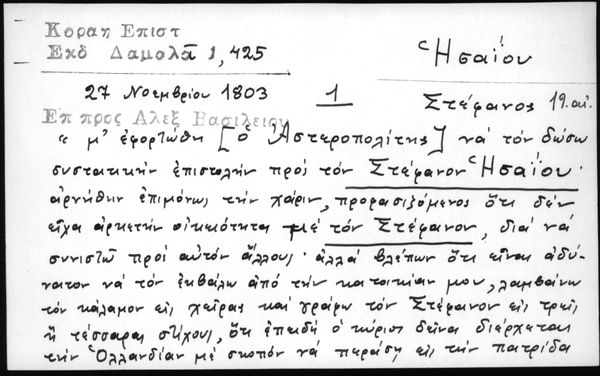 Κοραη Επιστ
Εκδ Δαμαλᾶ 1, 425
Ἡσαΐου
27 Νοεμβρίου 1803
1
Στέφανος 19. αἰ.
Επ προς Αλεξ Βασιλειου
« μ' ἐφορτώθη [ὁ Ἀστεροπολίτης] νά τόν δώσω
συστατικήν ἐπιστολήν πρός τόν Στέφανον Ἡσαΐου·
ἀρνήθην ἐπιμόνως τήν χάριν, προφασιζόμενος ὅτι δέν
εἶχα ἀρκετήν οἰκειότητα μέ τόν Στέφανον, διά νά
συνιστῶ πρός αὐτόν ἄλλους· ἀλλά βλέπων ὅτι εἶναι ἀδύ-
νατον νά τόν ἐκβάλω ἀπό τήν κατοικίαν μου, λαμβάνω
τόν κάλαμον εἰς χεῖρας καί γράφω τόν Στέφανον εἰς τρεῖς
ἤ τέσσαρας στίχους, ὅτι ἐπειδή ὁ κύριος δεῖνα διέρχεται
τήν Ὁλλανδίαν μέ σκοπόν νά περάσῃ εἰς τήν πατρίδα